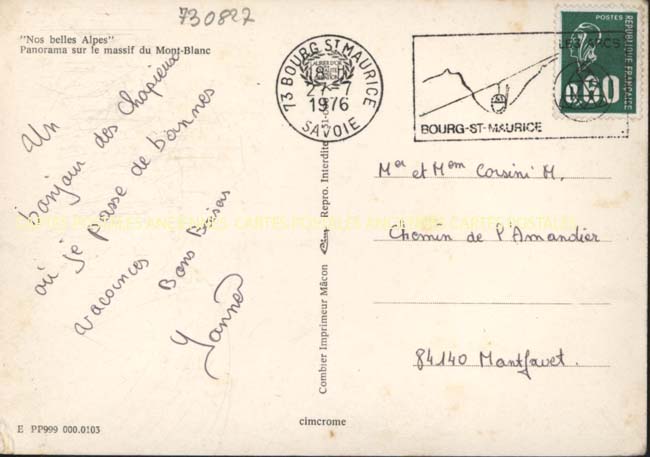 730827
"Nos belles Alpes"
Panorama sur le massif du Mont-Blanc
Un
bonjour des Chapieux
où je passe de bonnes
vacances
Bons Baisers
Combier Imprimeur Mâcon
Repro. Interdite
73 BOURG ST MAURICE
18 H
27-7
1976
SAVOIE
LES ARCS
BOURG-ST-MAURICE
POSTES
REPUBLIQUE FRANÇAISE
0,80
Mer et Mem Corsini M.
Chemin de l'Amandier
84140 Montfavet.
CARTES POSTALES ANCIENNES CARTES POSTALES ANCIENNES CARTES POSTALES
E PP999 000.0103
cimcrome